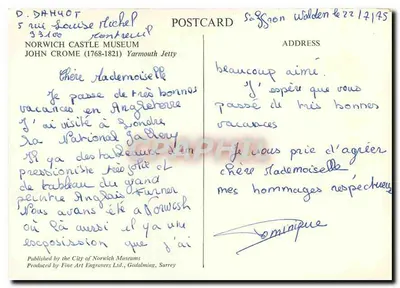 D. DAMYOT
5 rue Louise Michel
93100 Montreuil
POSTCARD
Saffron Walden le 22/7/75
NORWICH CASTLE MUSEUM
JOHN CROME (1768-1821) Yarmouth Jetty
ADDRESS
Chère Mademoiselle
Je passe de très bonnes
vacances en Angleterre
J'ai visité à Londre
la National Gallery
Il ya des tableaux d'im
pressioniste très joli et
de tableau du grand
peintre Anglais Turner
Nous avons été a Norwish
où là aussi il y a une
escposission que j'ai
beaucoup aimé.
J'espère que vous
passé de très bonnes
vacances
Je vous prie d'agréer
chère Mademoiselle
mes hommages respectueux
Dominique
Published by the City of Norwich Museums
Produced by Fine Art Engravers Ltd., Godalming, Surrey